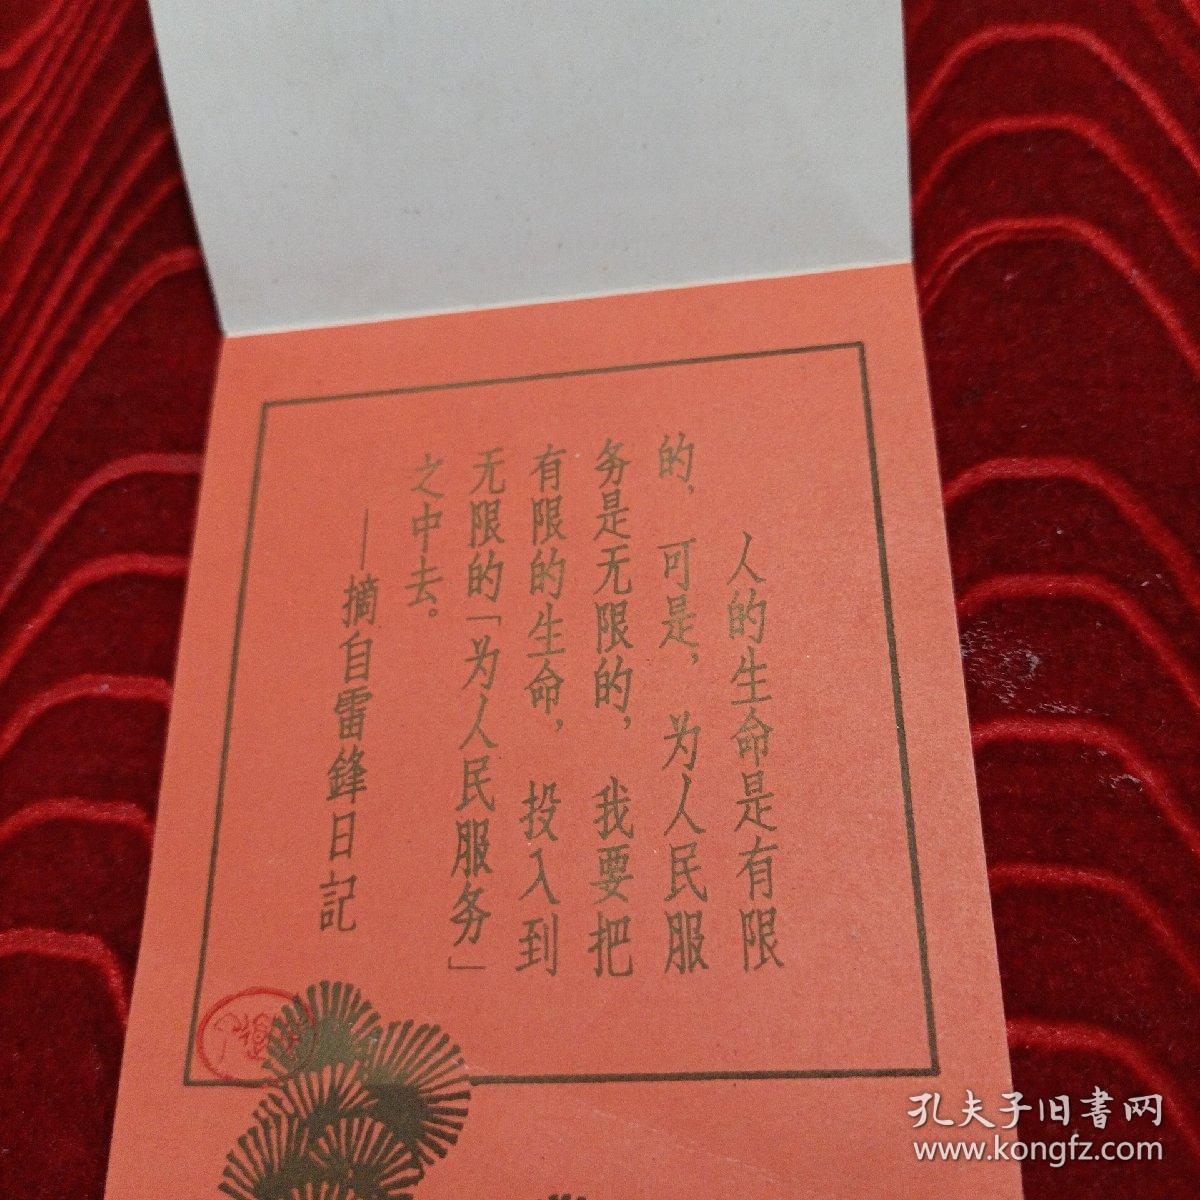 人的生命是有限
的，可是，为人民服
务是无限的，我要把
有限的生命，投入到
无限的「为人民服务」
之中去。
—摘自雷鋒日記
孔夫子旧書网
www.kongfz.com